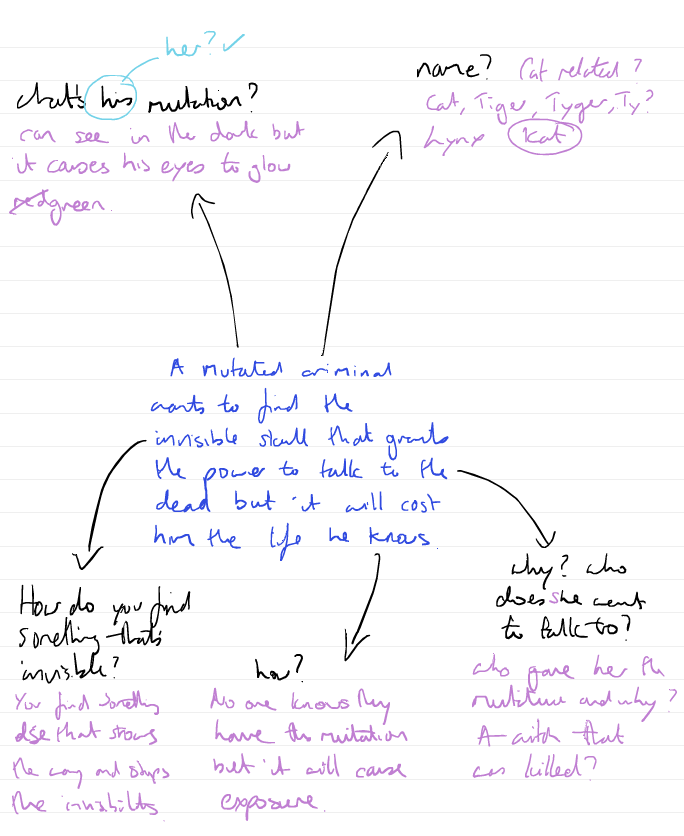 her? ✓
what's his mutation?
can see in the dark but
it causes his eyes to glow
red green.
name? Cat related?
Cat, Tiger, Tyger, Ty?
Lynx Kat
A mutated criminal
wants to find the
invisible skull that grants
the power to talk to the
dead but it will cost
him the life he knows.
How do you find
something that's
invisible?
You find something
else that shows
the way and stops
the invisibility
how?
No one knows they
have the mutation
but it will cause
exposure.
why? who
does she want
to talk to?
who gave her the
mutation and why?
A witch that
was killed?